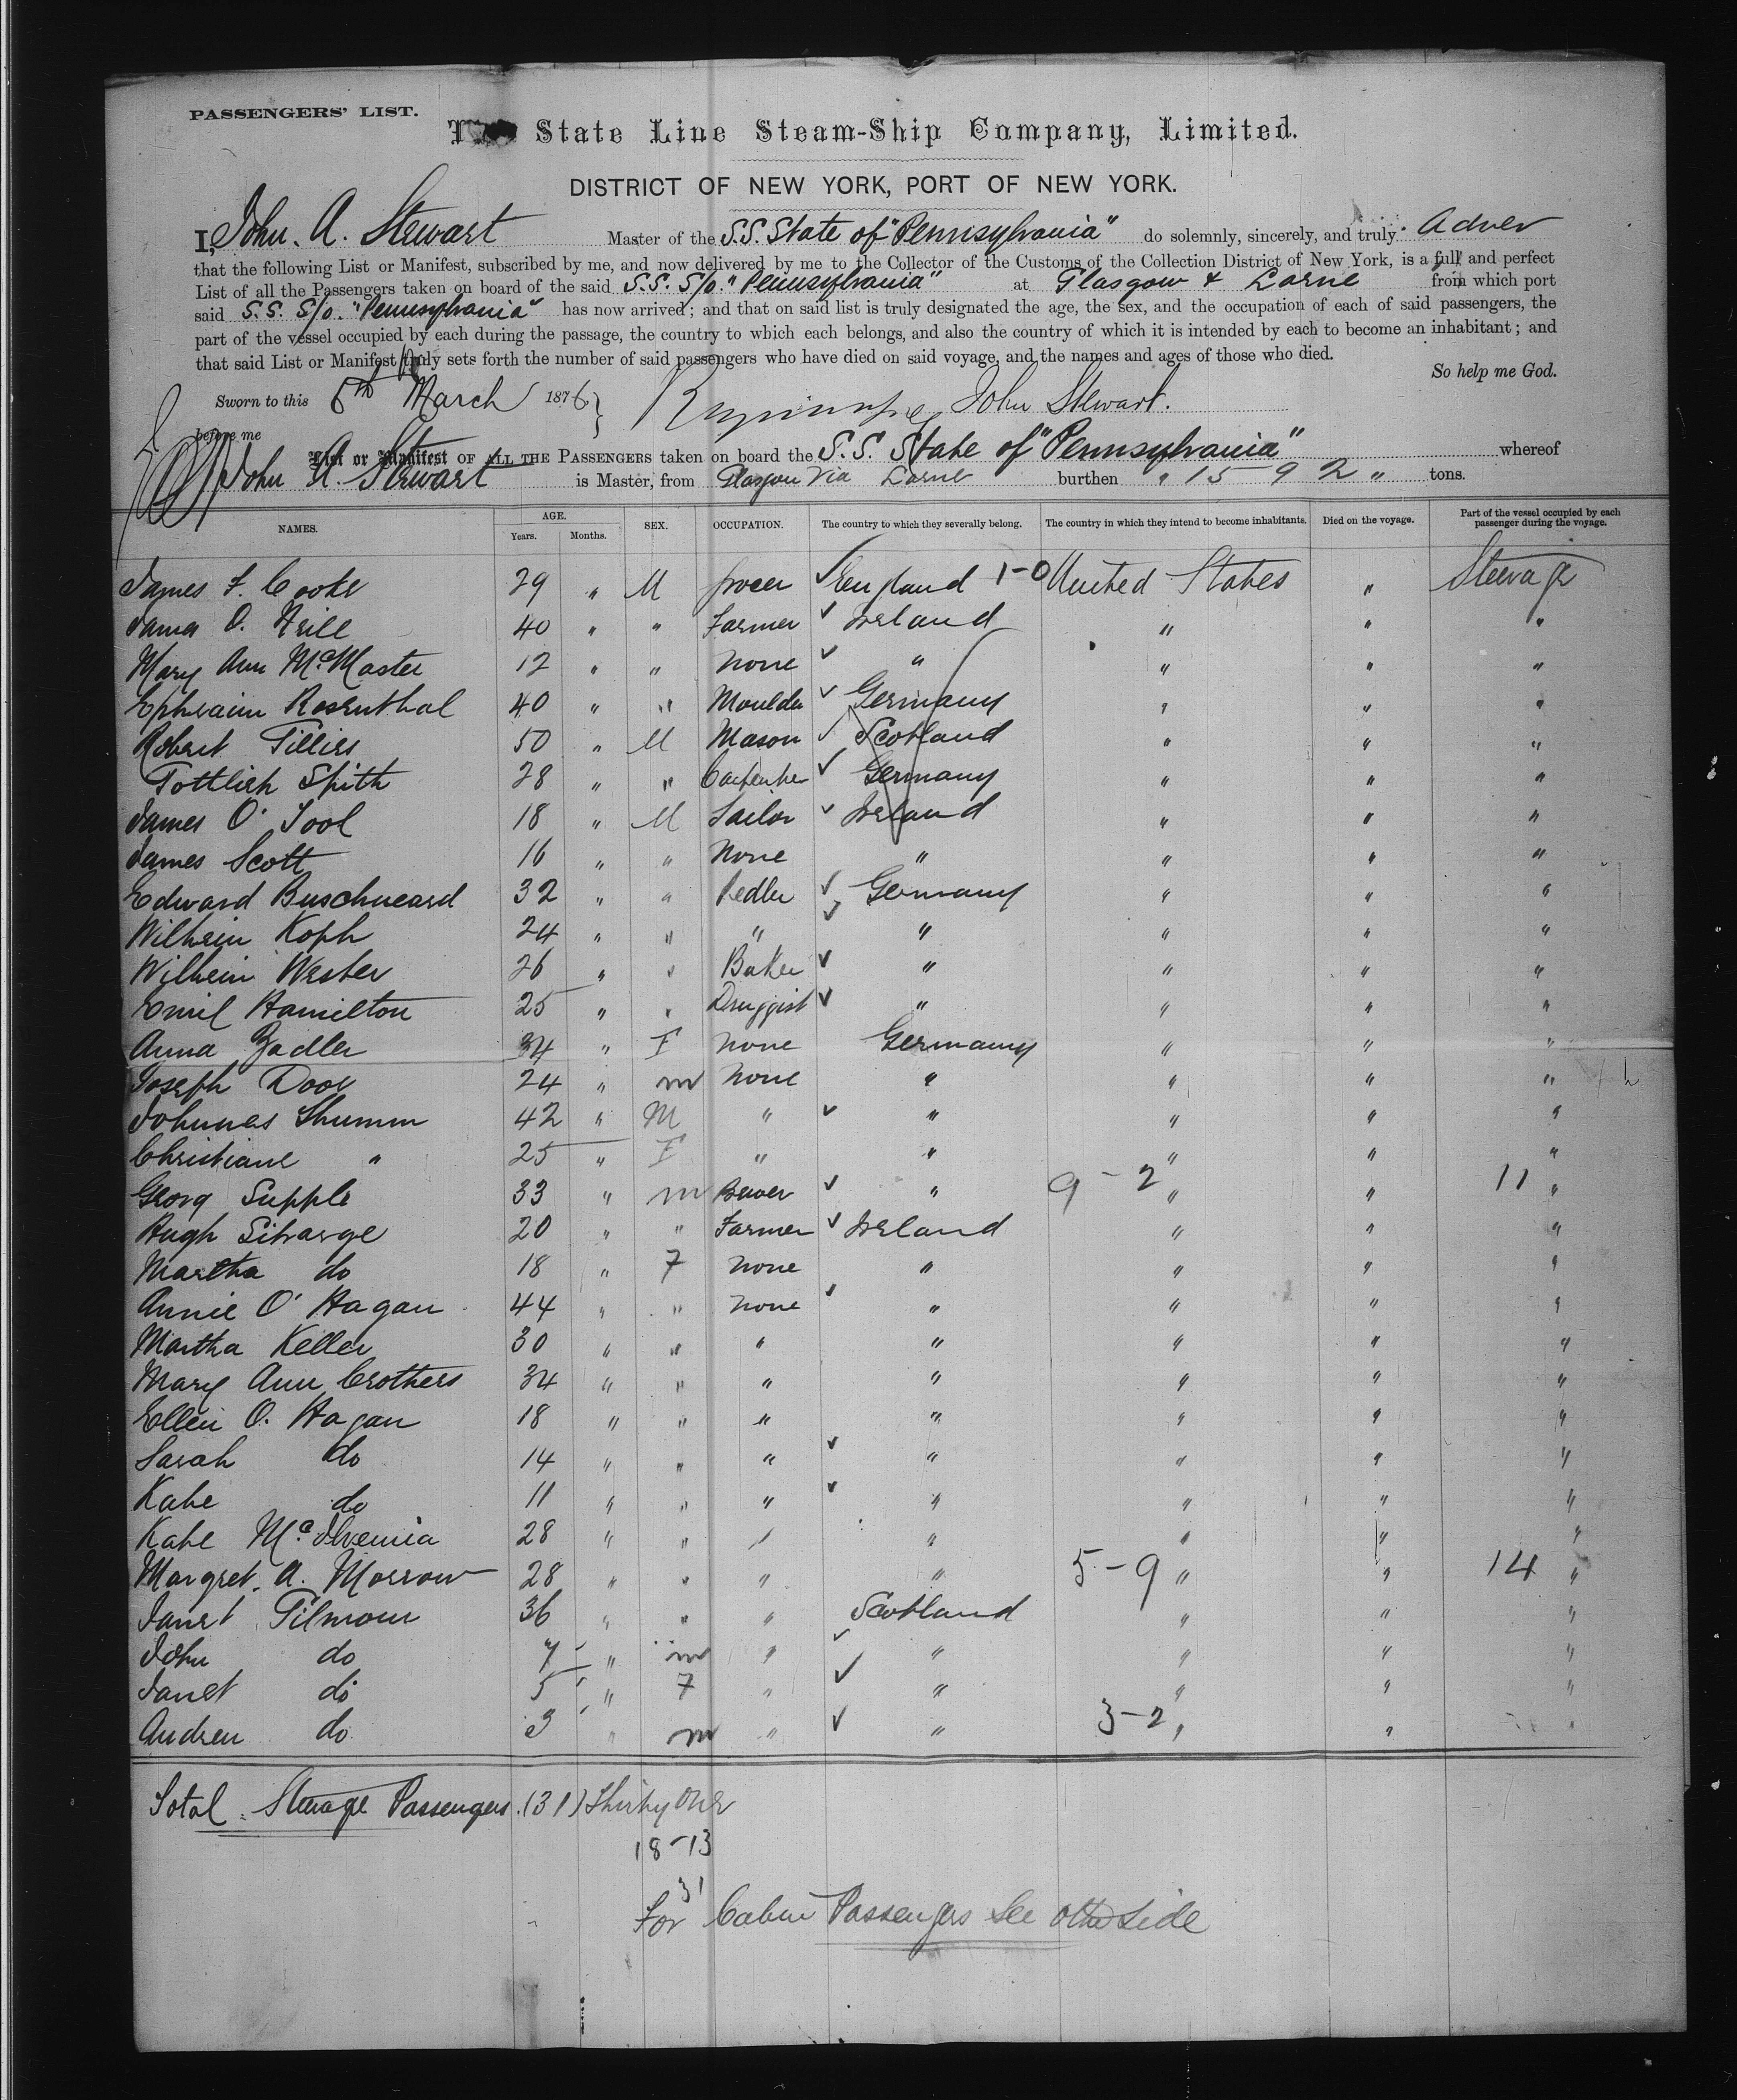 PASSENGERS' LIST.
The State Line Steam-Ship Company, Limited.
DISTRICT OF NEW YORK, PORT OF NEW YORK.
I, John. A. Stewart Master of the S.S. State of "Pennsylvania" do solemnly, sincerely, and truly
that the following List or Manifest, subscribed by me, and now delivered by me to the Collector of the Customs of the Collection District of New York, is a full and perfect
List of all the Passengers taken on board of the said S.S. S/o. "Pennsylvania" at Glasgow & Larne from which port
said S.S. S/o. "Pennsylvania" has now arrived; and that on said list is truly designated the age, the sex, and the occupation of each of said passengers, the
part of the vessel occupied by each during the passage, the country to which each belongs, and also the country of which it is intended by each to become an inhabitant; and
that said List or Manifest truly sets forth the number of said passengers who have died on said voyage, and the names and ages of those who died.
So help me God.
Sworn to this 6th March 1876 John Stewart.
before me
List or Manifest OF ALL THE PASSENGERS taken on board the S.S. State of "Pennsylvania" whereof
John A. Stewart is Master, from Glasgow Via Larne burthen " 1592 " tons.
NAMES. AGE. Years. Months. SEX. OCCUPATION. The country to which they severally belong. The country in which they intend to become inhabitants. Died on the voyage. Part of the vessel occupied by each passenger during the voyage.
James F. Cooke 29 " M Grocer ✓ England 1-0 United States " Steerage
James O. Neill 40 " " Farmer ✓ Ireland " " "
Mary Ann McMaster 12 " " None ✓ " " " "
Ephraim Rosenthal 40 " " Moulder ✓ Germany " " "
Robert Gillies 50 " M Mason ✓ Scotland " " "
Gottlieh Spith 28 " " Carpenter ✓ Germany " " "
James O' Tool 18 " M Sailor ✓ Ireland " " "
James Scott 16 " " None " " " "
Edward Buschueard 32 " " Pedler ✓ Germany " " "
Wilhein Koph 24 " " " ✓ " " " "
Wilhein Wester 26 " " Baker ✓ " " " "
Emil Hamilton 25 " " Druggist ✓ " " " "
Anna Zadler 34 " F None Germany " " "
Joseph Door 24 " m None " " " "
Johnnes Shumm 42 " M " ✓ " " " "
Christiane " 25 " F " " " " "
Georg Supple 33 " m Brewer ✓ " 9-2 " " 11 "
Hugh Sitrarge 20 " " Farmer ✓ Ireland " " "
Martha do 18 " F None " " " "
Annie O' Hagan 44 " " None ✓ " " " "
Martha Keller 30 " " " " " " "
Mary Ann Crothers 34 " " " " " " "
Ellen O. Hagan 18 " " " " " " "
Sarah do 14 " " " ✓ " " " "
Kate do 11 " " " ✓ " " " "
Kate McIlvenia 28 " " " " " " "
Margret. A. Morrow 28 " " " " 5-9 " " 14 "
Janet Gilmour 36 " " " Scotland " " "
John do 7 " m " ✓ " " " "
Janet do 5 " F " ✓ " " " "
Andrew do. 3 " m " ✓ " 3-2 " " "
Total Steerage Passengers (31) Thirty One
18-13
31
For Cabin Passengers See other Side